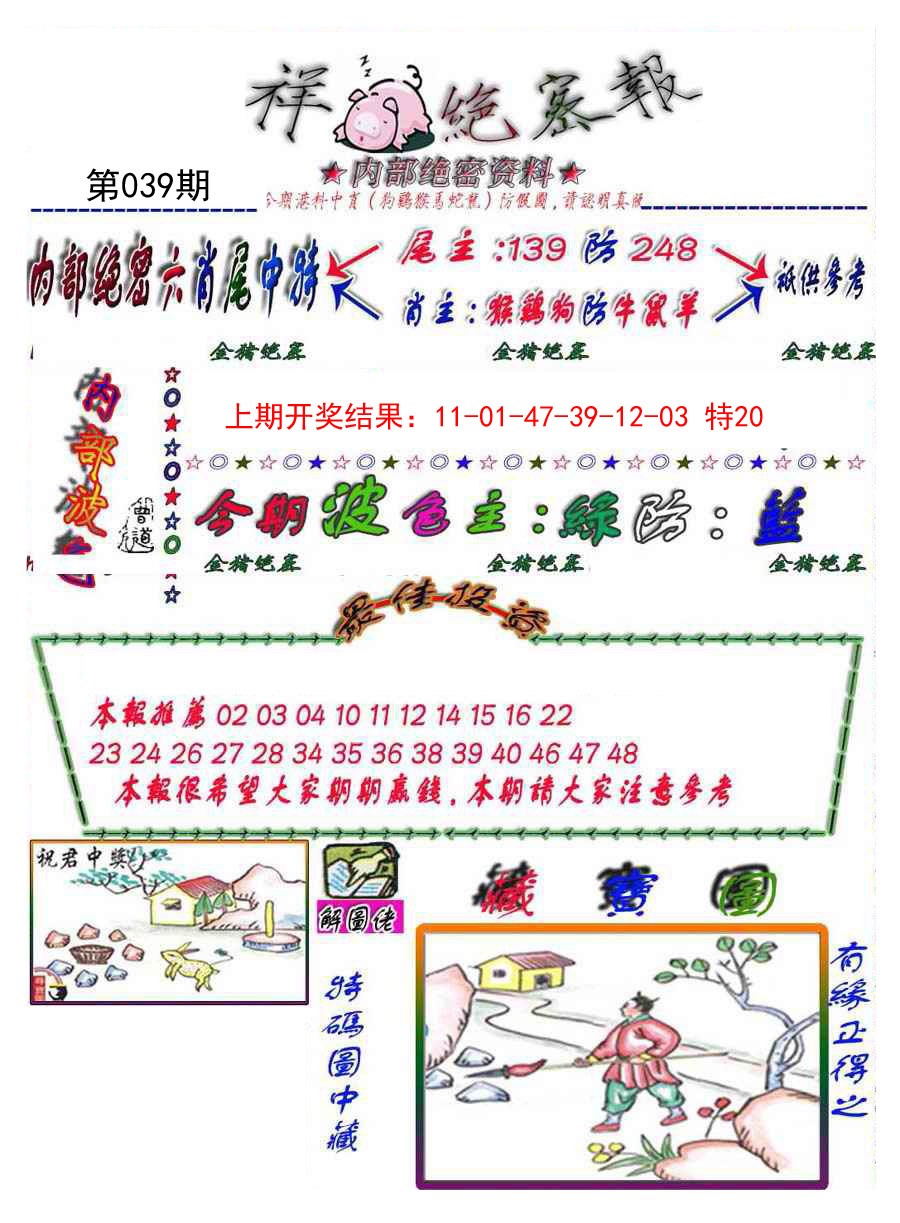 祥 絶密報
★内部绝密资料★
第039期
今期港料中肖（狗鷄猴馬蛇龍）防假圖，請認明真版
内部絶密六肖尾中特
尾主:139防248
肖主:猴鷄狗防牛鼠羊
衹供參考
金猪绝密 金猪绝密 金猪绝密
内部波色
上期开奖结果：11-01-47-39-12-03 特20
曾道
今期波色主:緑防:藍
金猪绝密 金猪绝密 金猪绝密
最佳投资
本報推薦 02 03 04 10 11 12 14 15 16 22
23 24 26 27 28 34 35 36 38 39 40 46 47 48
本報很希望大家期期贏錢,本期請大家注意參考
祝君中獎
解圖佬
特碼圖中藏
藏寶圖
有緣正得之